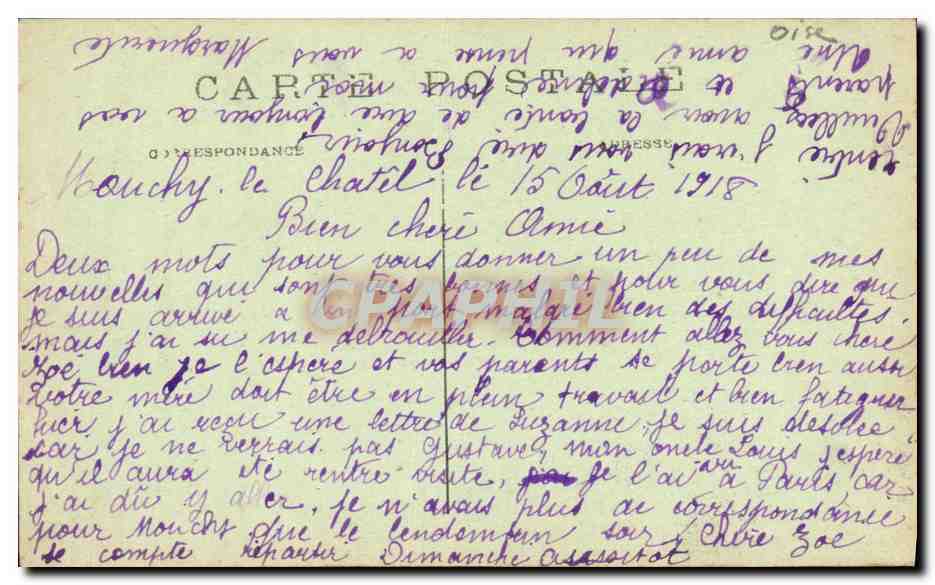 Oise
CARTE POSTALE
CORRESPONDANCE
ADRESSE
Mouchy le Chatêl le 15 Oôut 1918
Bien cherè Amiè
Deux mots pour vous donner un peu de mes
nouvelles qui sont très bonnes et pour vous dire que
je suis arrivè a bon port malgrè bien des difficultes.
mais j'ai su me debrouiller. Comment allez vous cherè
Zoé bien je l'espere et vos parents se porte bien aussi
Votre mèrè doit être en plein travail et bien fatiguer
hier j'ai recu une lettre de Suzanne, je suis desolée
car je ne verrais pas Gustave, mon oncle Louis j'esperè
qu'il aura etè rentre visite, je l'ai vu a Paris car
j'ai dû y aller, je n'avais plus de correspondance
pour Mouchy que le lendemain soir, Chère Zoé
se compte repartir Dimanche aussitot
rentrè j'irai vous dire Bonjour,
Veuillez avoir la bonté de dire bonjour a vos
parents et pour moi
Une amiè qui pense a vous Marguerite
CPAPHIL